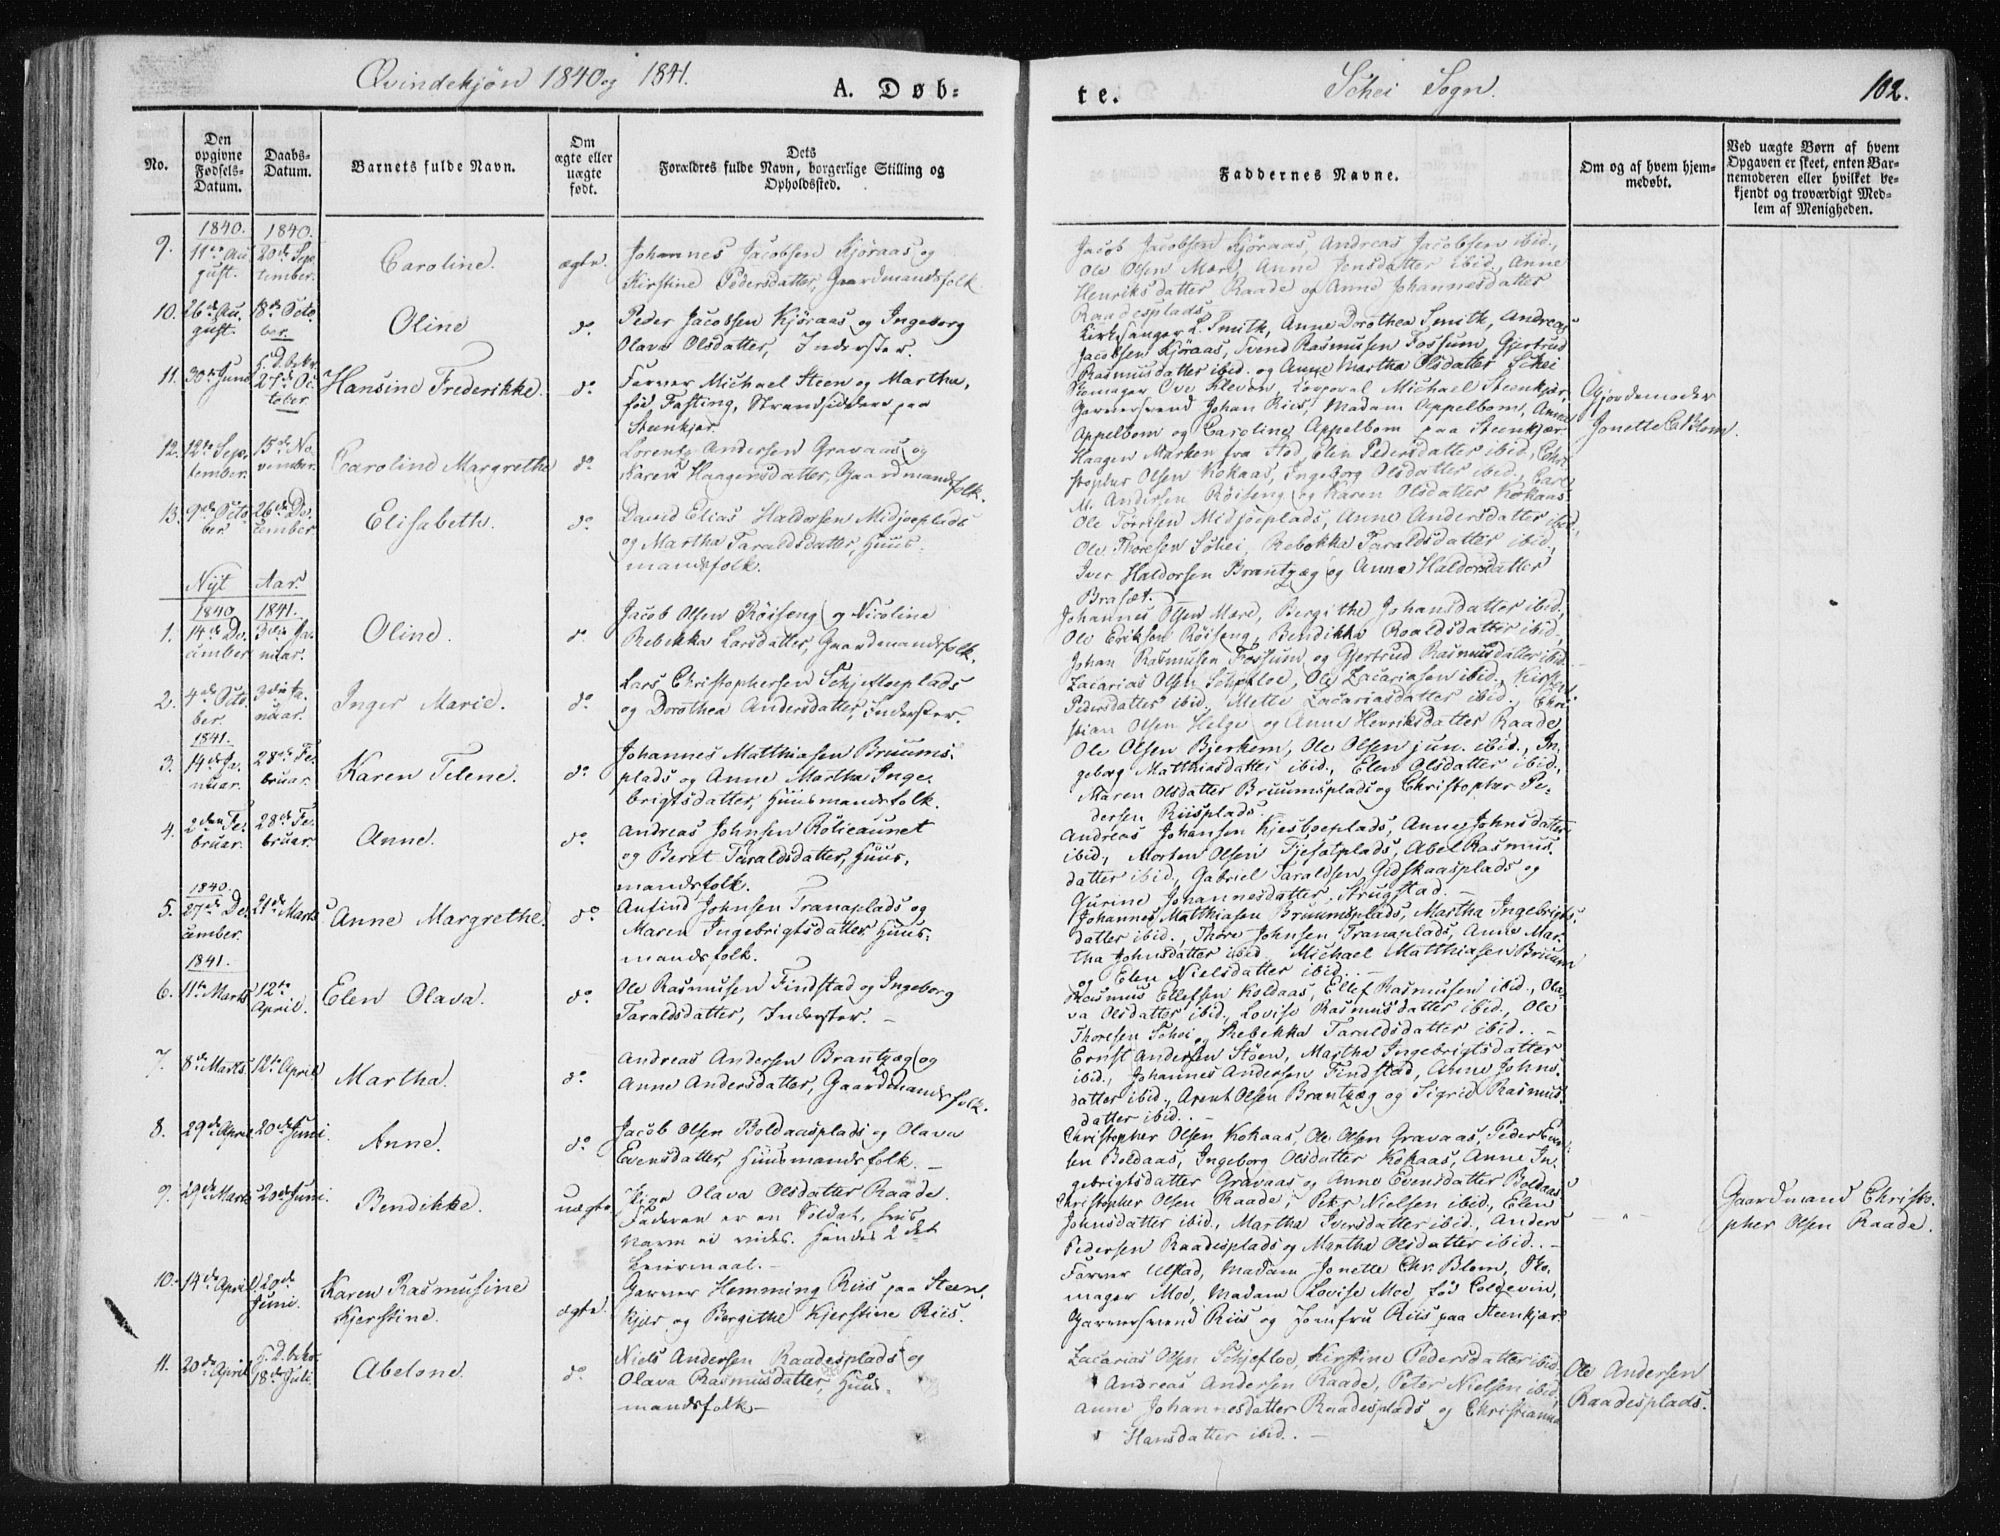 Qvindekjøn 1840 og 1841.
A. Døb-
te.
Schei Sogn.
102.
No.
Den opgivne Fødsels-Datum.
Daabs-Datum.
Barnets fulde Navn.
Om ægte eller uægte født.
Dets Forældres fulde Navn, borgerlige Stilling og Opholdssted.
Faddernes Navne.
Om og af hvem hjemmedøbt.
Ved uægte Børn af hvem Opgaven er skeet, enten Barnemoderen eller hvilket bekjendt og troværdigt Medlem af Menigheden.
1840. 1840.
9. 11te August. 20de September. Caroline. ægte.
Johannes Jacobsen Kjøraas og
Kirstine Pedersdatter, Gaardmandsfolk
Jacob Jacobsen Kjøraas, Andreas Jacobsen ibid.,
Ole Olsen Mære, Anne Jensdatter ibid., Anne
Henriksdatter Raade og Anne Johannesdatter
Raadesplads.
10. 26de August. 18de October. Oline do.
Peder Jacobsen Kjøraas og Ingeborg
Olava Olsdatter, Inderster.
Kirkesanger L. Smith, Anne Dorothea Smith, Andreas
Jacobsen Kjøraas, Svend Rasmusen Fossum, Gjertrud
Rasmusdatter ibid. og Anne Martha Olsdatter Schei
11. 30te Juni 27de October. Hansine Frederikke. do.
Farver Michael Steen og Martha,
fød Fasting, Strandsiddere paa
Steenkjær.
Skomager Ove Kleven, Corporal Michael Steenkjær,
Garversvend Johan Riis, Madam Appelbom, Anne
Appelbom og Caroline Appelbom paa Steenkjær.
Gjordemoder
Jonette C. Blom.
12. 12te September. 15de November. Caroline Margrethe do.
Lorentz Andersen Gravaas og
Karen Haagensdatter, Gaardmandsfolk.
Haagen Marken fra Stod, Elen Pedersdatter ibid., Christopher
Olsen Kokaas, Ingeborg Olsdatter ibid., Carl
M. Andersen Røiseng og Karen Olsdatter Kokaas.
13. 9de October. 26de December Elisabeth. do.
David Elias Haldorsen Midjoeplads
og Martha Taraldsdatter, Huus-
mandsfolk.
Ole Torrisen Midjoeplads, Anne Andersdatter ibid.,
Ole Thoresen Schei, Rebekke Taraldsdatter ibid.,
Iver Haldorsen Brantzæg og Anne Haldorsdatter
Brasæt.
Nyt Aar.
1840. 1841.
1. 14de December 3die Januar. Oline. do.
Jacob Olsen Røiseng og Nicoline
Rebekka Larsdatter, Gaardmandsfolk.
Johannes Olsen Mære, Bergithe Johansdatter ibid.
Ole Eriksen Røiseng, Bendikka Roaldsdatter ibid.,
Johan Rasmusen Fossum og Gjertrud Rasmusdatter ibid.
2. 4de October. 3die Januar. Inger Marie. do.
Lars Christophersen Schjefloeplads
og Dorothea Andersdatter, Inderster.
Zacarias Olsen Schefloe, Ole Zacariasen ibid., Kirsten
Pedersdatter ibid. Mette Zacariasdatter ibid., Chri-
stian Olsen Helge og Anne Henriksdatter Raade
1841.
3. 14de Januar. 28de Februar. Karen Telene. do.
Johannes Matthiasen Bruums-
plads og Anne Martha Inge-
brigtsdatter, Huusmandsfolk.
Ole Olsen Bjerkem, Ole Olsen jun. ibid., In-
geborg Matthiasdatter ibid., Elen Olsdatter ibid.,
Maren Olsdatter Bruumsplads og Christopher Pe-
dersen Riisplads.
4. 2den Februar. 28de Februar. Anne. do.
Andreas Johnsen Rolieaunet
og Beret Taraldsdatter, Huus-
mandsfolk.
Andreas Johansen Kjesboeplads, Anne Johnsdatter
ibid., Morten Olsen Tjesætplads, Abel Rasmus-
datter ibid., Gabriel Taraldsen Gidskaasplads og
Gurine Johannesdatter Strugstad.
1840.
5. 27de December. 21de Marts. Anne Margrethe. do
Anfind Johnsen Tranaplads og
Maren Ingebrigtsdatter Huus-
mandsfolk.
Johannes Matthiasen Bruumsplads, Martha Ingebrigts-
datter ibid., Thore Johnsen Tranaplads, Anne Mar-
tha Johnsdatter ibid. Michael Matthiasen Bruum
og Elen Nielsdatter ibid.
1841.
6. 11te Marts 12te April. Elen Olava. do.
Ole Rasmusen Findstad og Ingeborg
Taraldsdatter, Inderster.
Rasmus Ellefsen Koldaas, Ellef Rasmusen ibid., Ola-
va Olsdatter ibid., Lovise Rasmusdatter ibid., Ole
Thoresen Schei og Rebekka Taraldsdatter ibid.
7. 8de Marts. 12te April Martha. do.
Andreas Andersen Brantzæg og
Anne Andersdatter, Gaardmandsfolk.
Ernst Andersen Støen, Martha Ingebrigtsdatter
ibid., Johannes Andersen Findstad, Anne Johns-
datter ibid., Arent Olsen Brantzæg og Sigrid Rasmus-
datter ibid.
8. 29de April 20de Juni. Anne. do
Jacob Olsen Boldaasplads og Olava
Evensdatter, Huusmandsfolk.
Christopher Olsen Kokaas, Ole Olsen Gravaas, Peder Even-
sen Boldaas, Ingeborg Olsdatter Kokaas, Anne In-
gebrigtsdatter Gravaas og Anne Evensdatter Boldaas
9. 29de Marts 20de Juni. Bendikke. uægte
Pige Olava Olsdatter Raade.
Faderen er en Soldat, hvis
Navn ei vides. Hendes 2det
Leiermaal.
Christopher Olsen Raade, Peter Nielsen ibid., Elen
Johnsdatter ibid., Martha Iversdatter ibid., Anders
Pedersen Raadesplads og Martha Olsdatter ibid.
Gaardmand Christo-
pher Olsen Raade.
10. 14de April 20de Juni. Karen Rasmusine
Kjerstine. ægte.
Garver Hemming Riis paa Steen-
kjær og Bergithe Kjerstine Riis.
Farver Ulstad, Madam Jonette Chr. Blom, Sko-
mager Moe, Madam Lovise Moe, fød Coldevin,
Garversvend Riis og Jomfru Riis paa Steenkjær.
11. 20de April 18de Juli. Abelone. do.
Niels Andersen Raadesplads og
Olava Rasmusdatter, Huus-
mandsfolk
Zacarias Olsen Schjefloe, Kirstine Pedersdatter ibid.
Andreas Andersen Raade, Peter Nielsen ibid.,
Anne Johannesdatter Raadesplads og Christianna
Hansdatter ibid.
Ole Andersen
Raadesplads.